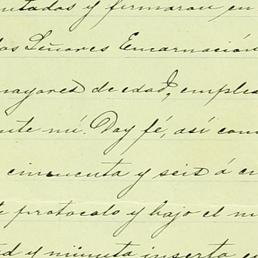 ntados y firmaron en
los Señores Encarnación
mayores de edad, emplea
nte mí. Doy fé, así com
cincuenta y seis á
protocolo y bajo el n
y minuta inserta